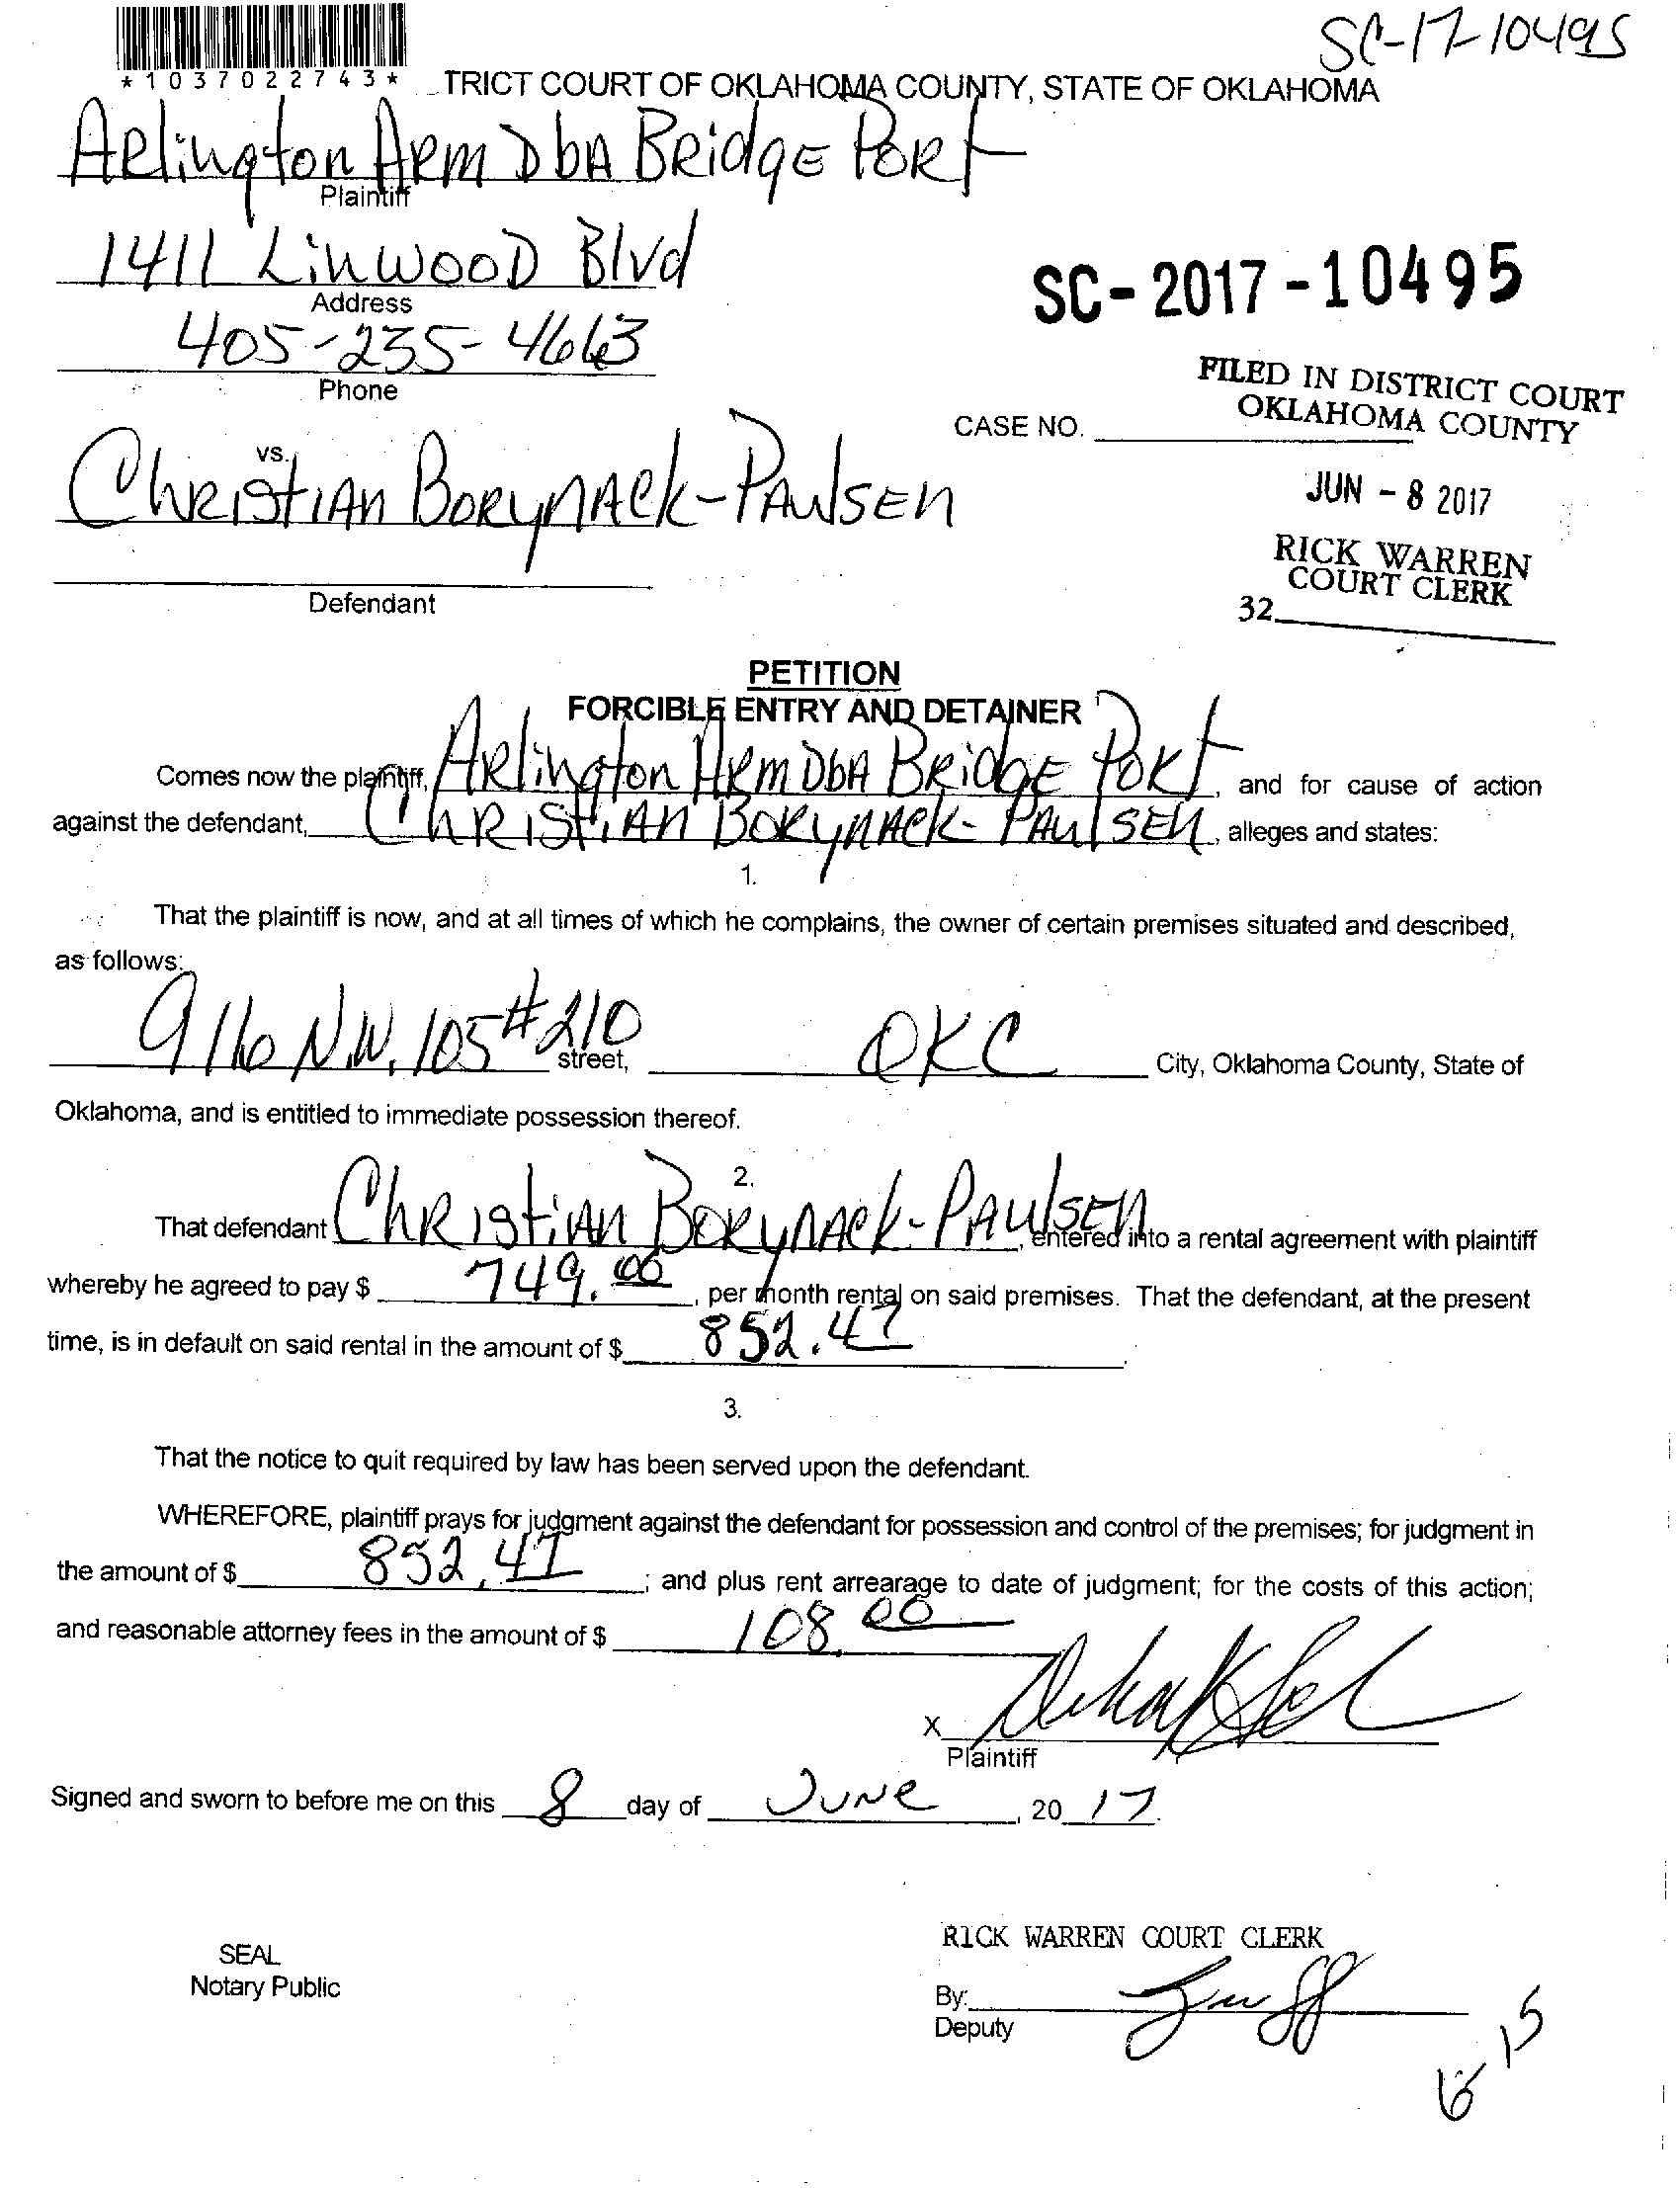 SC-17-10495
*1037022743*
TRICT COURT OF OKLAHOMA COUNTY, STATE OF OKLAHOMA
Arlington Arm DbA Bridge Port
Plaintiff
1411 Linwood Blvd
Address
SC-2017-10495
405-235-4663
Phone
FILED IN DISTRICT COURT
OKLAHOMA COUNTY
CASE NO.
vs.
Christian Borynack-Paulsen
JUN - 8 2017
RICK WARREN
COURT CLERK
Defendant
32
PETITION
FORCIBLE ENTRY AND DETAINER
Comes now the plaintiff, Arlington Arm DbA Bridge Port, and for cause of action
against the defendant, Christian Borynack-Paulsen, alleges and states:
1.
That the plaintiff is now, and at all times of which he complains, the owner of certain premises situated and described,
as follows:
916 N.W. 105 #210 street, OKC City, Oklahoma County, State of
Oklahoma, and is entitled to immediate possession thereof.
2.
That defendant Christian Borynack-Paulsen, entered into a rental agreement with plaintiff
whereby he agreed to pay $ 749.00, per month rental on said premises. That the defendant, at the present
time, is in default on said rental in the amount of $ 852.41.
3.
That the notice to quit required by law has been served upon the defendant.
WHEREFORE, plaintiff prays for judgment against the defendant for possession and control of the premises; for judgment in
the amount of $ 852.41; and plus rent arrearage to date of judgment; for the costs of this action;
and reasonable attorney fees in the amount of $ 108.00
X
Plaintiff
Signed and sworn to before me on this 8 day of June, 20 17.
RICK WARREN COURT CLERK
SEAL
Notary Public
By:
Deputy
6-15